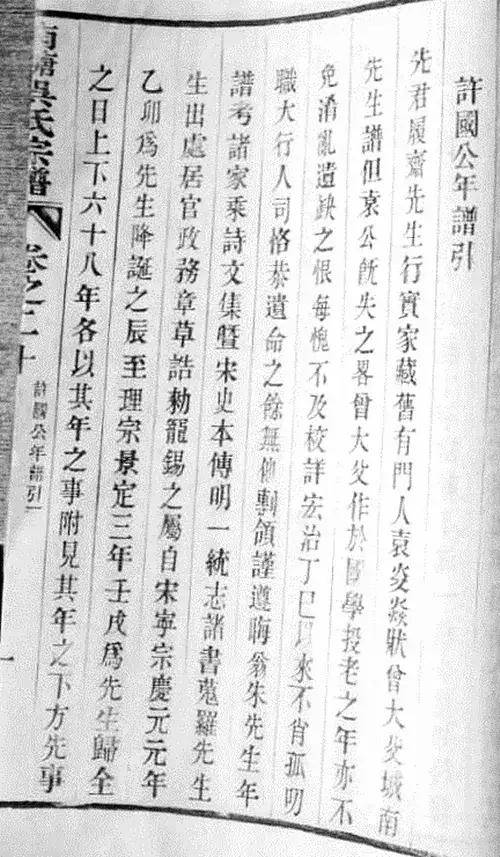 許國公年譜引
先君履齋先生行實家藏舊有門人袁炎焱狀曾大父城南
先生譜但袁公旣失之畧曾大父作於國學投老之年亦不
免淆亂遺缺之恨每愧不及校詳宏治丁巳以來不肖孤明
職大行人司恪恭遺命之餘無他剸領謹遵晦翁朱先生年
譜考諸家乘詩文集暨宋史本傳明一統志諸書蒐羅先生
生出處居官政務章草誥勅寵錫之屬自宋寧宗慶元元年
乙卯爲先生降誕之辰至理宗景定三年壬戌爲先生歸全
之日上下六十八年各以其年之事附見其年之下方先事
吳氏宗譜
卷之二十
許國公年譜引
一